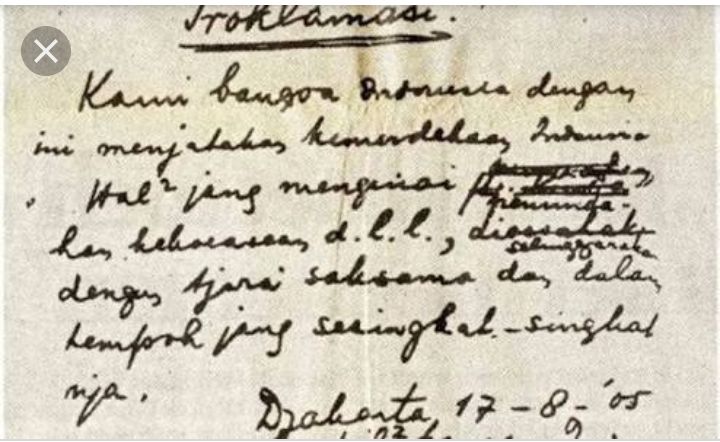 Proklamasi.
Kami bangsa Indonesia dengan
ini menjatakan kemerdekaan Indonesia
. Hal² jang mengenai
peminda-
han kekoeasaan d.l.l., dioesahak
selenggarakan
dengan tjara saksama dan dalam
tempoh jang sesingkat-singkat
nja.
Djakarta, 17 - 8 - '05